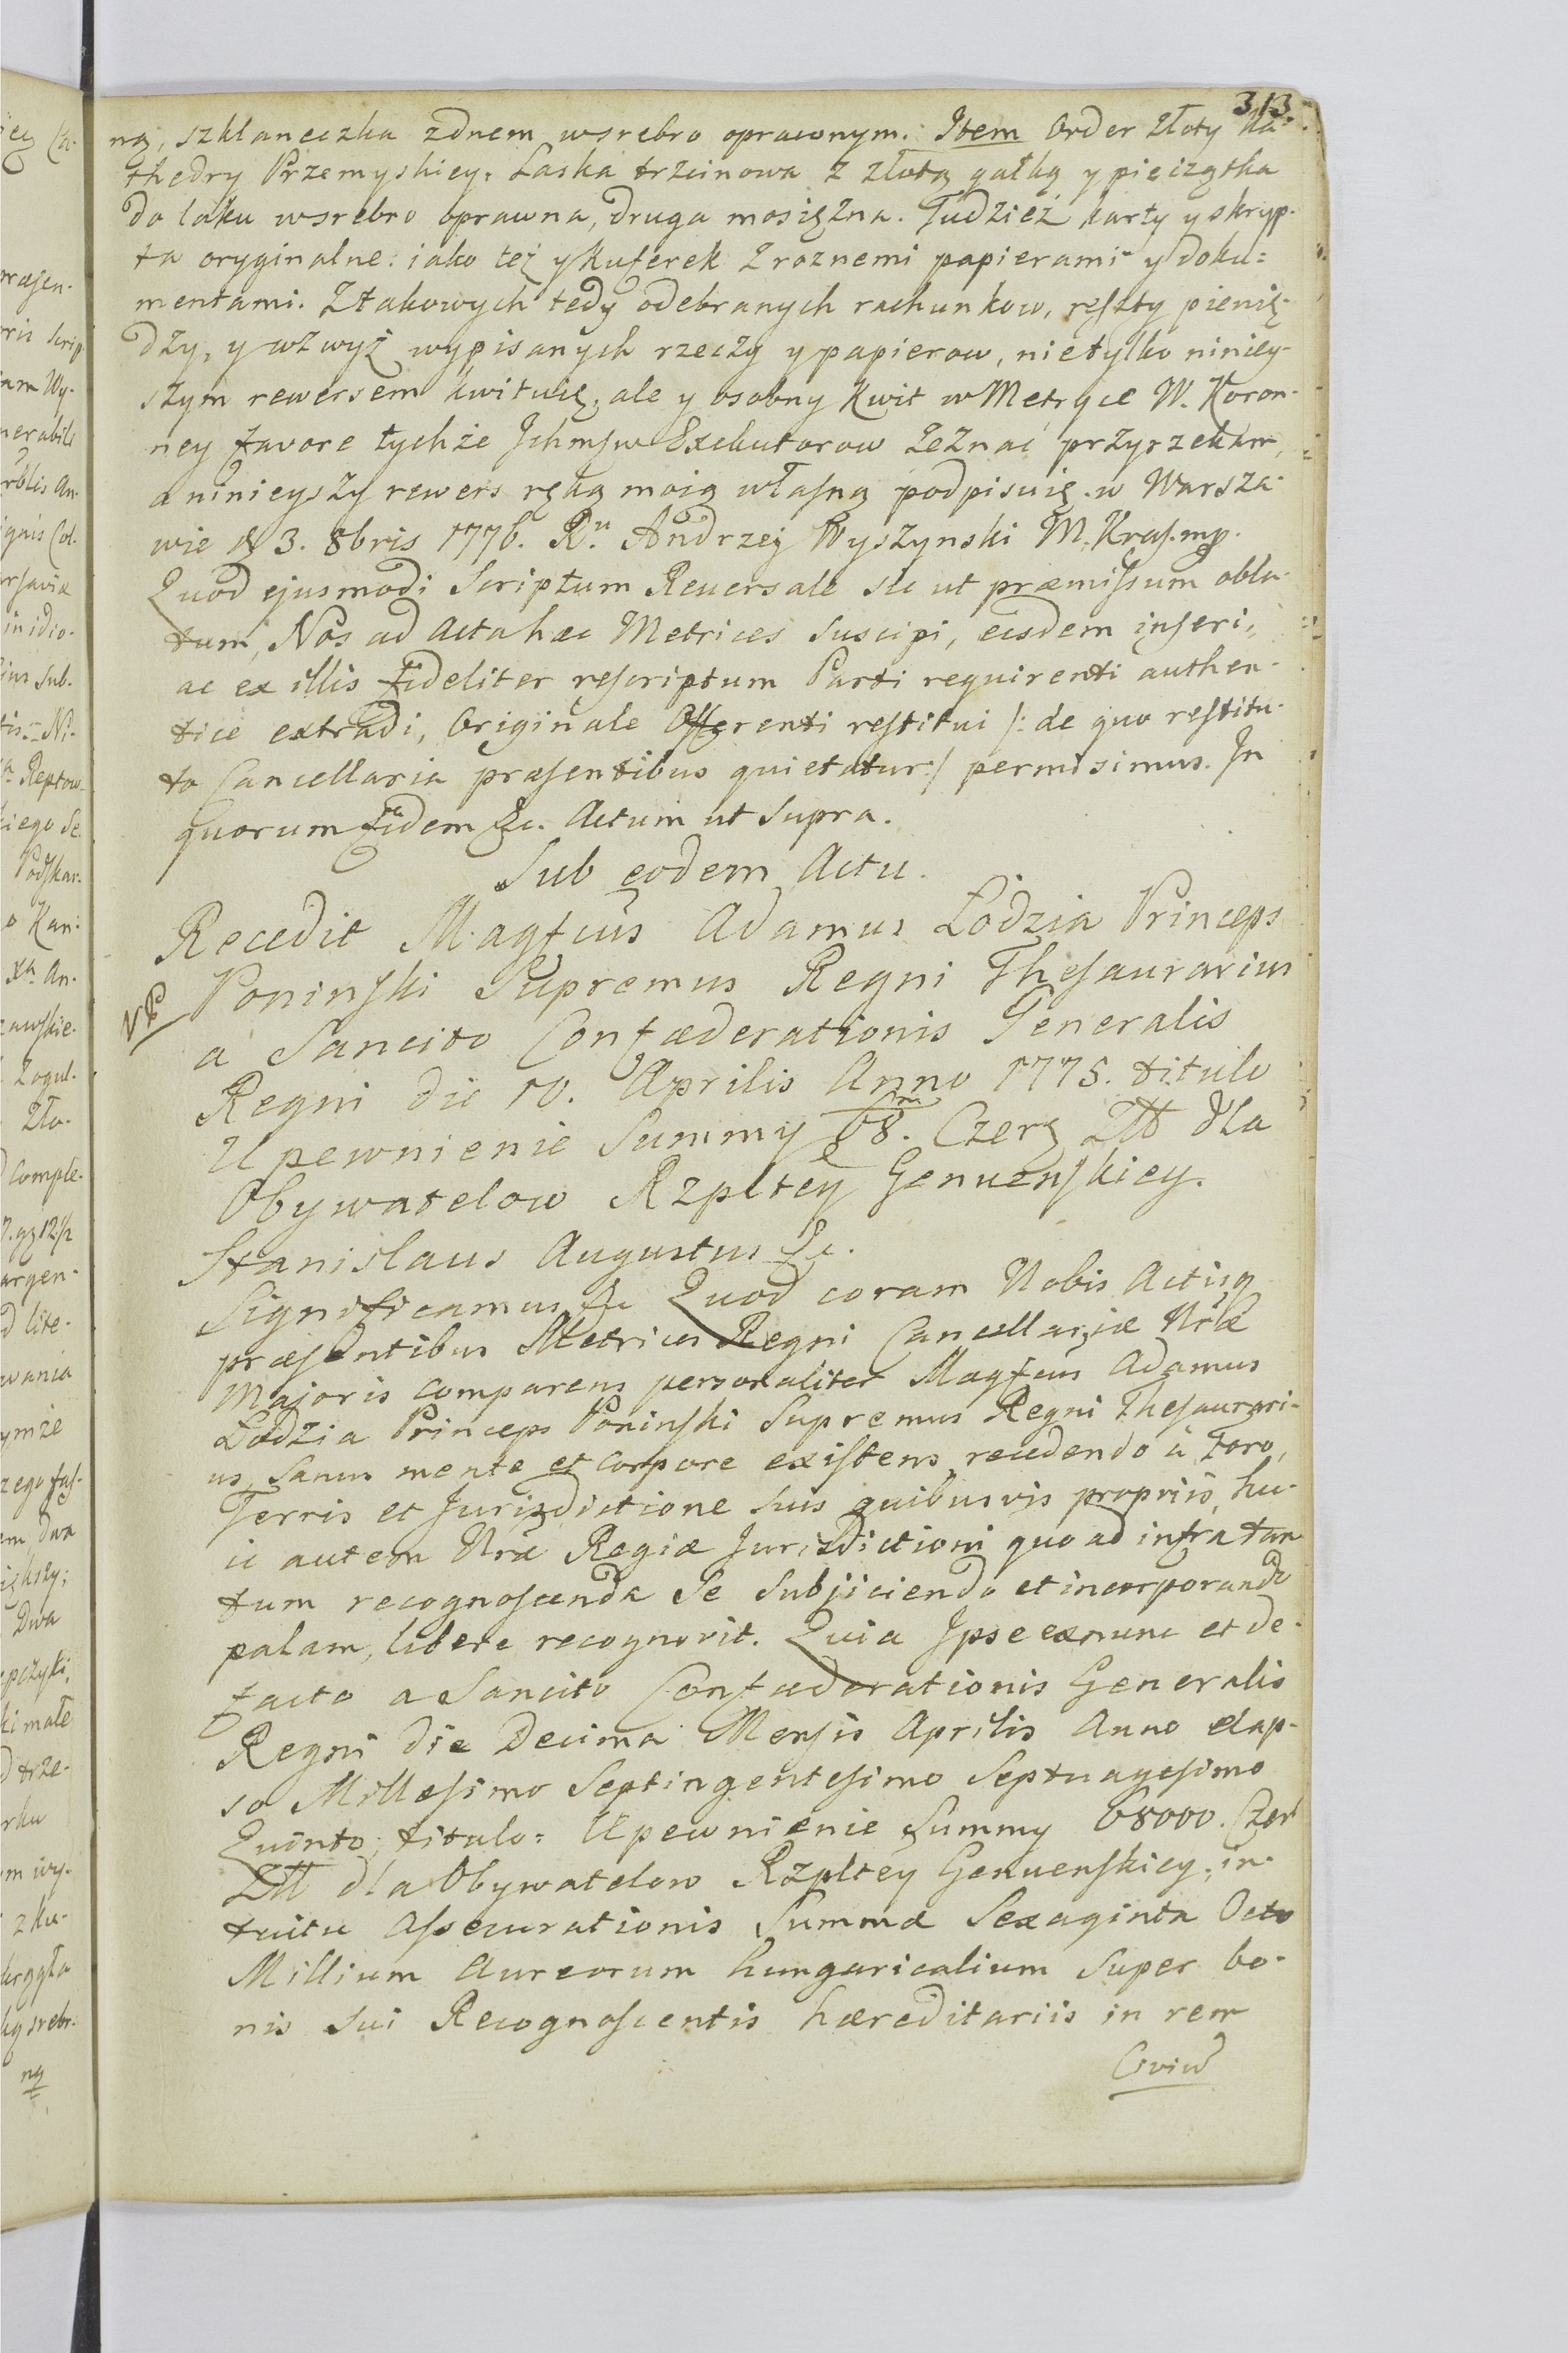 313
ną, szklaneczka zdnem wsrebro oprawnym. Item Order Złoty Ka-
thedry Przemyskiey, Laska trzcinowa z złotą gałką y pieczątka
do laku wsrebro oprawna, druga mosiężna. Tudzież karty y skryp-
ta oryginalne: iako też y Kuferek z roznemi papierami y doku=
mentami. Ztakowych tedy odebranych rachunkow, reszty pienię-
dzy, y wzwyż wypisanych rzeczy y papierow, nietylko niniey-
szym rewersem kwituię, ale y osobny Kwit w Metryce W. Koron-
ney favore tychże Ichmsw Exekutorow zeznać przyrzekam,
a ninieyszy rewers ręką moią własną podpisuię. w Warsza-
wie d 3. 8bris 1776. Andrzey Wyszynski M. Kras. mp.
Quod ejusmodi Scriptum Reversale sic ut præmissum obla-
tum, Nos ad Acta hæc Metrices suscipi, eisdem inseri,
ac ex illis fideliter rescriptum Parti requirenti authen-
tice extradi, Originale Offerenti restitui /: de quo restitu-
to Cancellaria præsentibus quietatur :/ permisimus. In
quorum fidem &c. Actum ut supra.
Sub eodem Actu.
Recedit Magfcus Adamus Łodzia Princeps
Poninski Supremus Regni Thesaurarius
a Sancito Confæderationis Generalis
Regni die 10. Aprilis Anno 1775. titulo
Upewnienie Summy 68. Czerą Złł dla
Obywatelow Rzpltey Genuenskiey.
Stanislaus Augustus &c.
Significamus &c Quod coram Nobis Actisq
præsentibus Metrices Regni Cancellariæ Nræ
Majoris comparens personaliter Magfcus Adamus
Lodzia Princeps Poninski Supremus Regni Thesaurari-
us, sanus mente et corpore existens, recedendo à Foro,
Terris et Jurisdictione suis quibusvis propriis, hu-
ic autem Nræ Regiæ Jurisdictioni quo ad infra tan
tum recognoscenda se subjiciendo et incorporando
palam, libere recognovit. Quia Ipse exnunc et de-
facto a Sancito Confæderationis Generalis
Regni die Decima Mensis Aprilis Anno elap-
so Millesimo Septingentesimo Septuagesimo
Quinto, titulo: Upewnienie Summy 68000. Czer
Złł dla Obywatelow Rzpltey Genuenskiey, in-
tuitu assecurationis Summæ Sexaginta Octo
Millium Aureorum hungaricalium super bo-
nis sui Recognoscentis hæreditariis in rem
Civiu